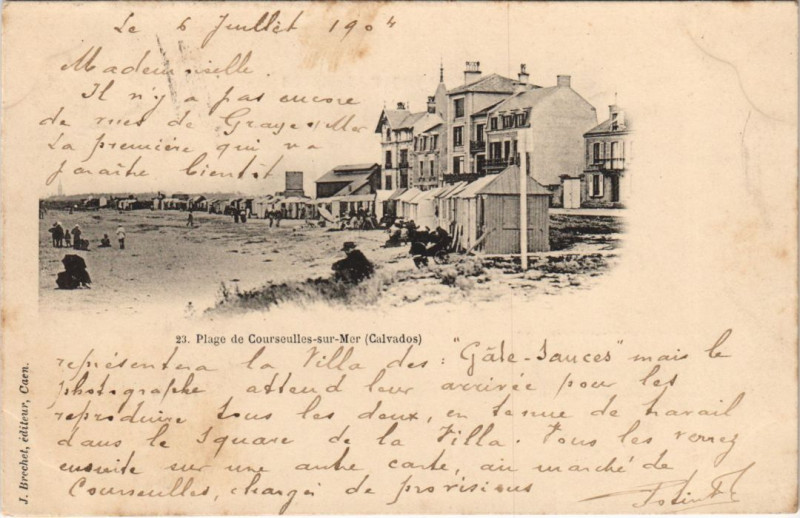 Le 6 Juillet 1904
Mademoiselle.
Il n'y a pas encore
de vues de Graye s/Mer
La première qui va
paraître bientôt
23. Plage de Courseulles-sur-Mer (Calvados)
représentera la Villa des : "Gâte-Sauces" mais le
photographe attend leur arrivée pour les
reproduire tous les deux, en tenue de travail
dans le Square de la Villa. Vous les verrez
ensuite sur une autre carte, au marché de
Courseulles, chargés de provisions
J. Brechet, éditeur, Caen.